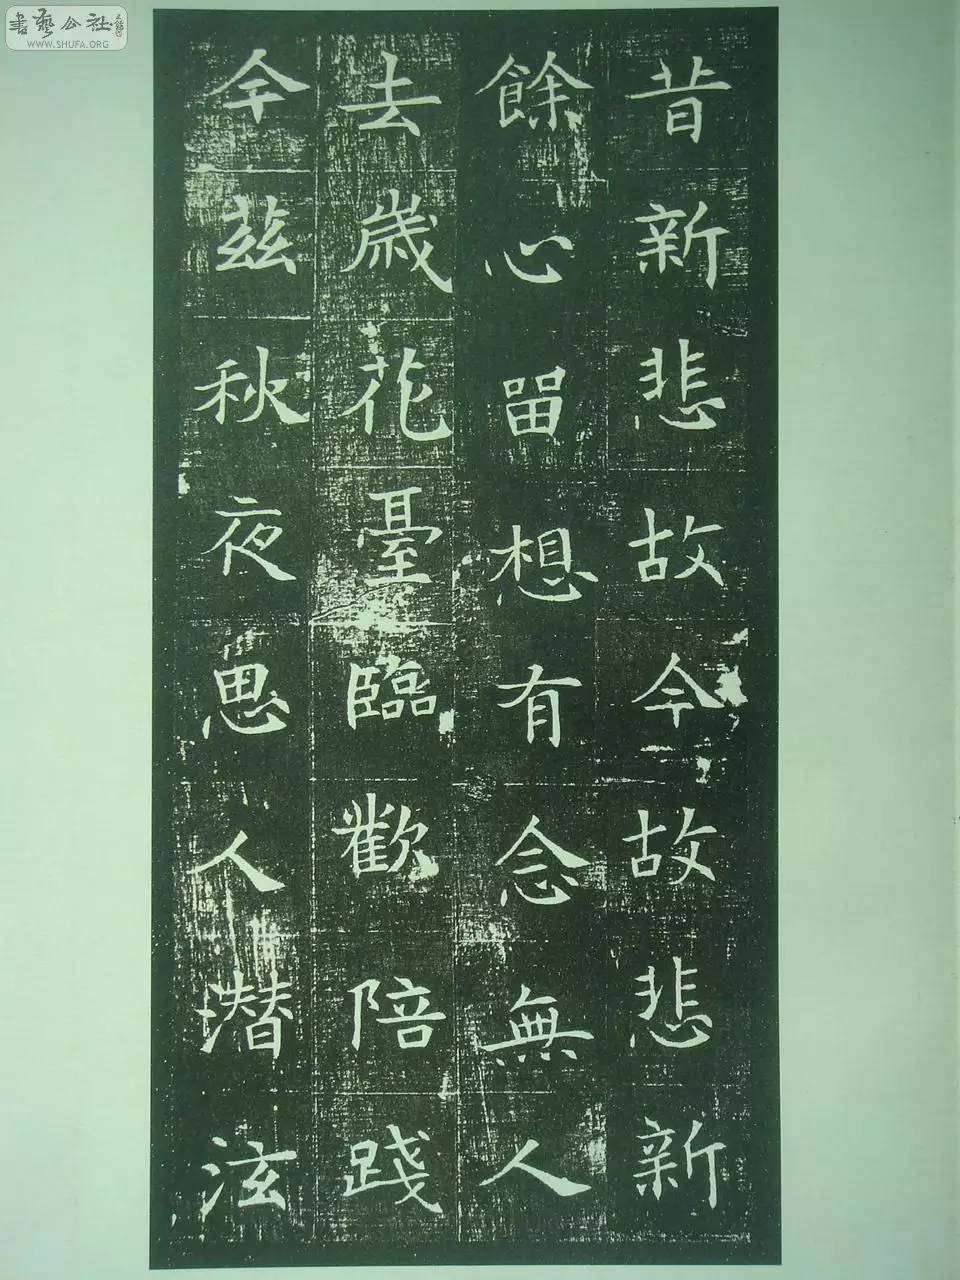 昔新悲故今故悲新
餘心留想有念無人
去歲花臺臨歡陪踐
今茲秋夜思人潜泫
書藝公社
WWW.SHUFA.ORG